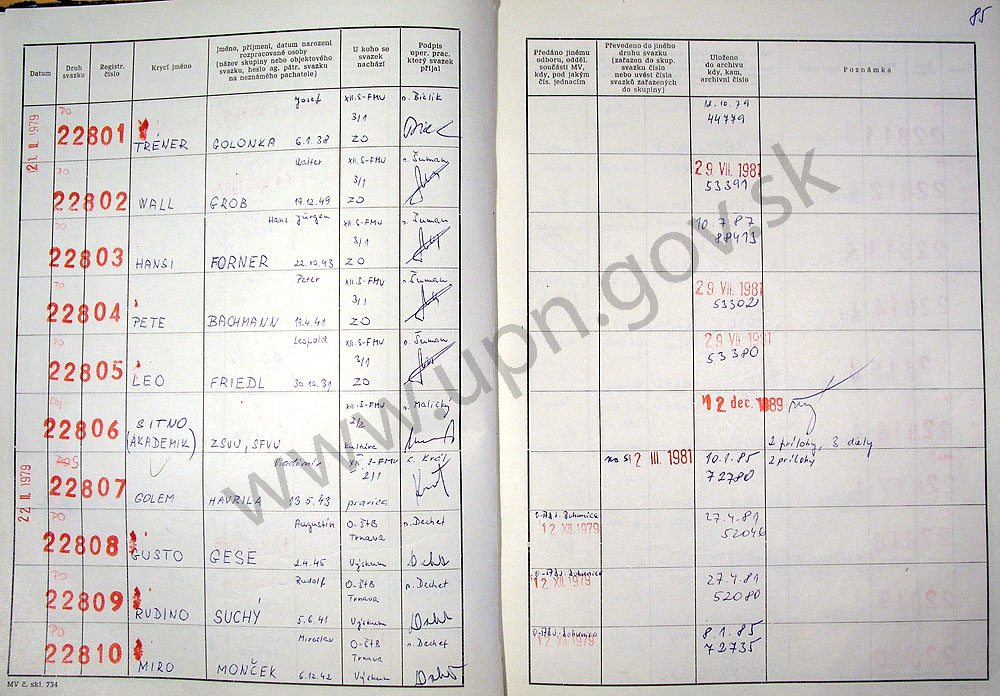 85
Datum
Druh svazku
Registr. číslo
Krycí jméno
Jméno, příjmení, datum narození
rozpracované osoby
(název skupiny nebo objektového
svazku, heslo ag. pátr. svazku
na neznámého pachatele)
U koho se
svazek
nachází
Podpis
oper. prac.
který svazek
přijal
Předáno jinému
odboru, odděl.
součásti MV,
kdy, pod jakým
čís. jednacím
Převedeno do jiného
druhu svazku
(zařazen do skup.
svazku číslo
nebo uvést čísla
svazků zařazených
do skupiny)
Uloženo
do archivu
kdy, kam,
archivní číslo
Poznámka
21. II. 1979
PO
22801
TRÉNER
Jozef
GOLONKA 6.1.38
XII.S-FMV
3/1
ZO
p. Bielik
12.10.79
44779
PO
22802
WALL
Walter
GROB 19.12.49
XII.S-FMV
3/1
ZO
p. Šuman
29. VII. 1981
53391
PO
22803
HANSI
Hans Jürgen
FORNER 22.10.43
XII.S-FMV
3/1
ZO
p. Šuman
10.7.87
88413
PO
22804
PETE
Peter
BACHMANN 19.4.41
XII.S-FMV
3/1
ZO
p. Šuman
29. VII. 1981
53302
PO
22805
LEO
Leopold
FRIEDL 30.10.31
XII.S-FMV
3/1
ZO
p. Šuman
29. VII. 1981
53380
Obj.
22806
SITNO
(AKADEMIK)
ZSVU, SFVU,
XII.S-FMV
2/2
kultúra
p. Maličký
12. dec. 1989
2 prílohy, 3 diely
22. II. 1979
22807
GOLEM
Vladimír
HAVRILA 13.5.43
XII.S-FMV
2/1
pravica
c. Kráľ
na SI 2. III. 1981
10.1.85
72780
2 prílohy
PO
22808
GUSTO
Augustín
GESE 2.4.45
O-ŠtB
Trnava
Výskum
p. Dechet
12. XII. 1979
27.4.81
52046
PO
22809
RUDINO
Rudolf
SUCHÝ 5.6.41
O-ŠtB
Trnava
Výskum
p. Dechet
12. XII. 1979
27.4.81
52080
PO
22810
MIRO
Miroslav
MONČEK 6.12.42
O-ŠtB
Trnava
Výskum
p. Dechet
12. XII. 1979
8.1.85
72735
MV č. skl. 734
www.upn.gov.sk